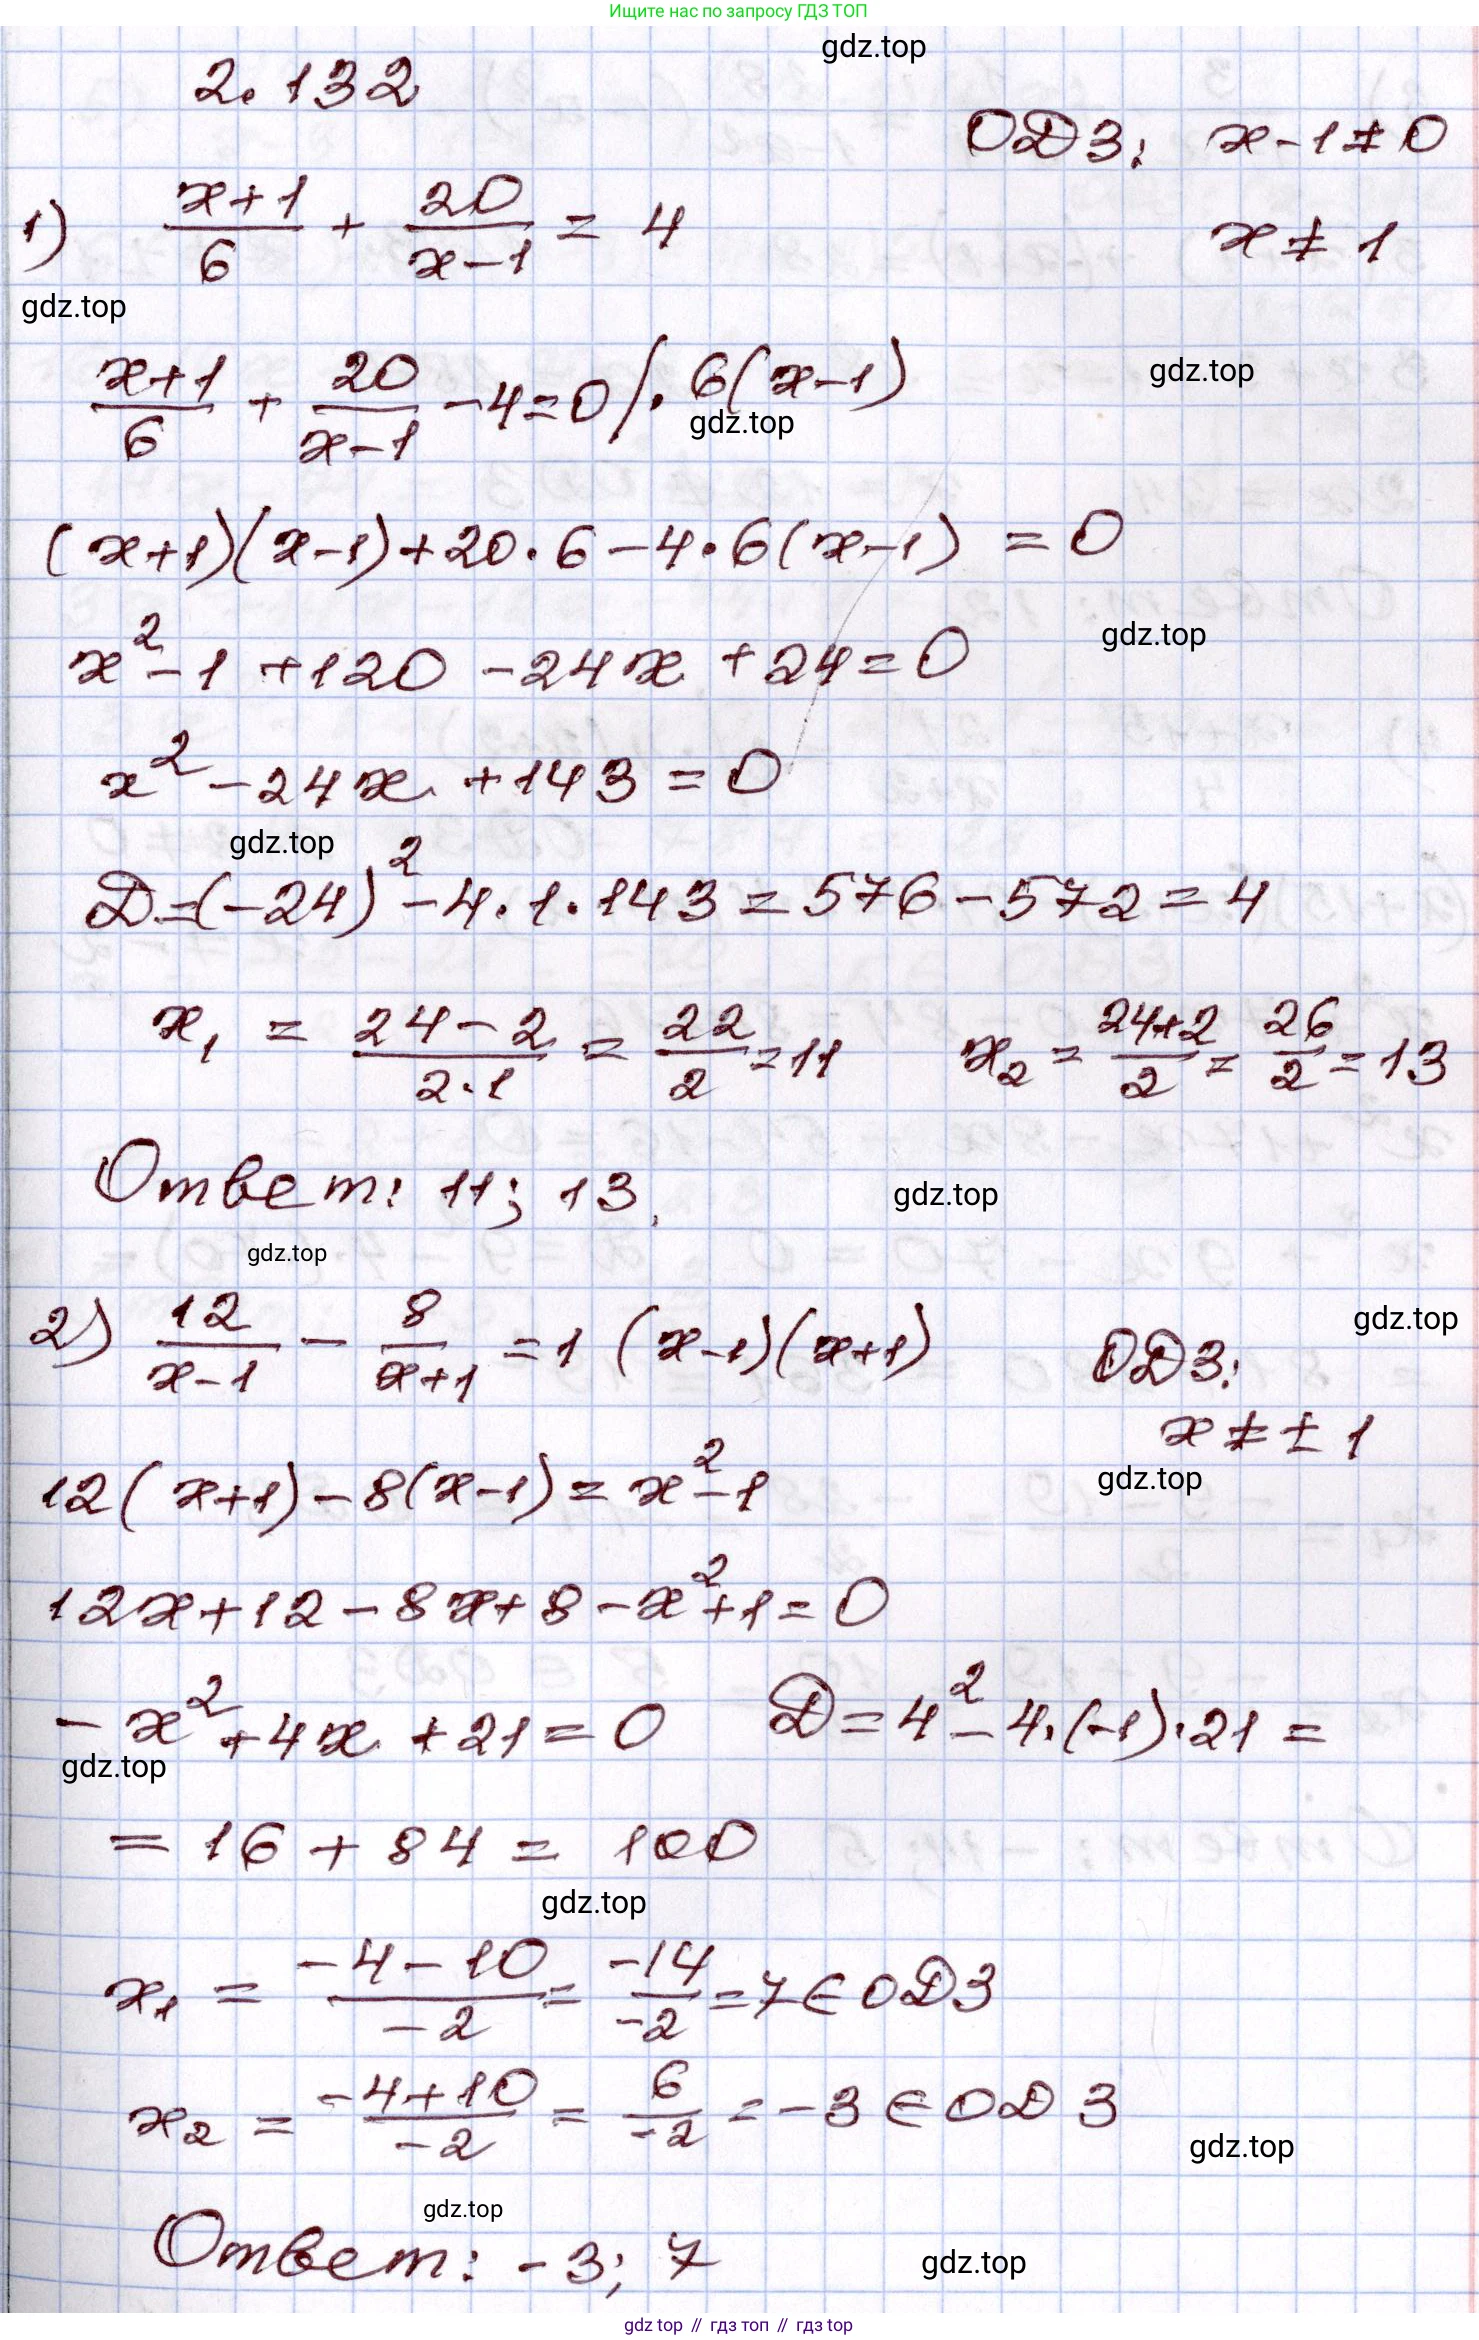 Ищите нас по запросу ГДЗ ТОП
gdz.top
2.132
ОДЗ: x-1≠0
1) (x+1)/6 + 20/(x-1) = 4
x ≠ 1
gdz.top
(x+1)/6 + 20/(x-1) - 4 = 0 / · 6(x-1)
gdz.top
gdz.top
(x+1)(x-1)+20·6-4·6(x-1) = 0
gdz.top
x²-1+120-24x+24=0
x²-24x+143=0
gdz.top
D=(-24)²-4·1·143=576-572=4
x₁ = (24-2)/(2·1) = 22/2 = 11 x₂ = (24+2)/2 = 26/2 = 13
Ответ: 11; 13.
gdz.top
gdz.top
2) 12/(x-1) - 8/(x+1) = 1 (x-1)(x+1)
gdz.top
ОДЗ:
x ≠ ± 1
gdz.top
12(x+1)-8(x-1)=x²-1
12x+12-8x+8-x²+1=0
-x²+4x+21=0 D=4²-4·(-1)·21=
gdz.top
=16+84=100
gdz.top
x₁ = (-4-10)/(-2) = (-14)/(-2) = 7 ∈ ОДЗ
x₂ = (-4+10)/(-2) = 6/(-2) = -3 ∈ ОДЗ
gdz.top
gdz.top
Ответ: -3; 7
gdz.top
gdz top // гдз топ // gdz top